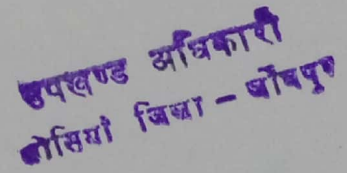 उपखण्ड अधिकारी
ओसियां जिला - जोधपुर